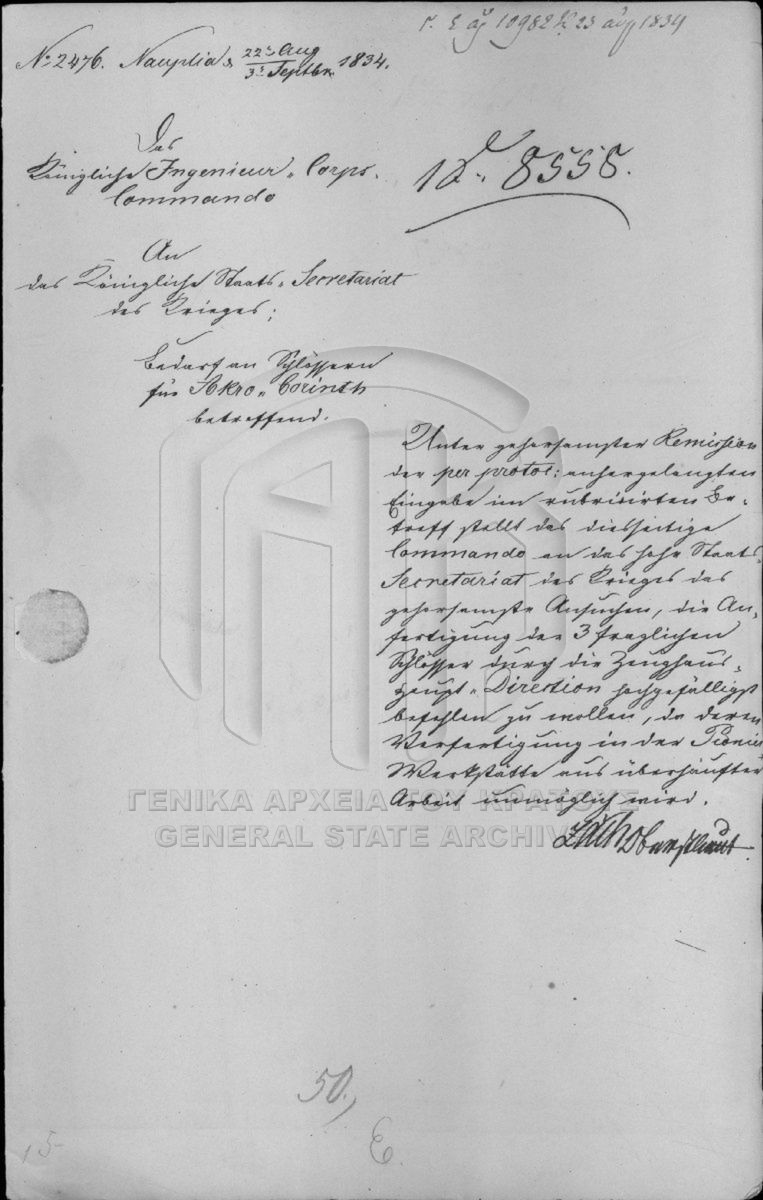 10982 23 αυγ 1834
No 2476. Nauplia d. 22t Aug / 3t Septbr. 1834.
Das
Königliche Ingenieur-Corps-
Commando
8558.
An
das Königliche Staats-Secretariat
des Krieges;
Bedarf an Schlössern
für Akro-Corinth
betreffend.
Unter gehorsamster Remission
der per protoc: anhergelangten
Eingabe im rubricirten Be-
treff stellt das diesseitige
Commando an das hohe Staats-
Secretariat des Krieges das
gehorsamste Ansuchen, die An-
fertigung der 3 fraglichen
Schlösser durch die Zeughaus-
Haupt-Direction hochgefälligst
befehlen zu wollen, da deren
Verfertigung in der Pionier
Werkstätte aus überhäufter
Arbeit unmöglich wird.
Zäch Oberstlieut
ΓΕΝΙΚΑ ΑΡΧΕΙΑ ΤΟΥ ΚΡΑΤΟΥΣ
GENERAL STATE ARCHIVES
50.
E.
15